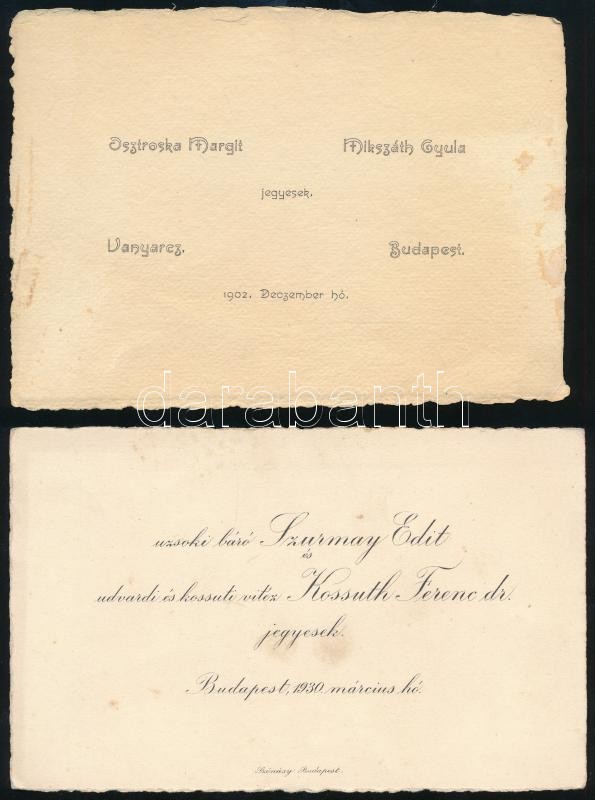 Osztroska Margit Mikszáth Gyula
jegyesek.
Vanyarcz. Budapest.
1902. Deczember hó.
darabanth
uzsoki báró Szurmay Edit
és
udvardi és kossuti vitéz Kossuth Ferenc dr.
jegyesek.
Budapest, 1930. március hó.
Szénásy Budapest.